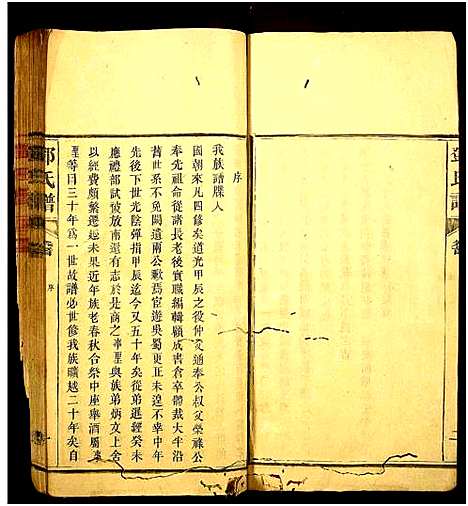 序
我族譜牒入
國朝來凡四修矣道光甲辰之役仲父通奉公叔父榮祿公
奉先祖命從諸長老後實職編輯顧成書倉卒體裁大半沿
舊世系不免闕遺兩公歉焉宦遊吳蜀更正未遑不幸中年
先後下世光陰彈指甲辰迄今又五十年矣從弟遐經癸未
應禮部試被放南歸有志於是商之聖與族弟炳文上舍
以經費頗繁遷起未果近年族老春秋合祭中座舉酒屬
聖等曰三十年為一世故譜必世修我族曠越二十年矣自
鄧氏譜
卷
序
一
鄧氏譜
卷
二